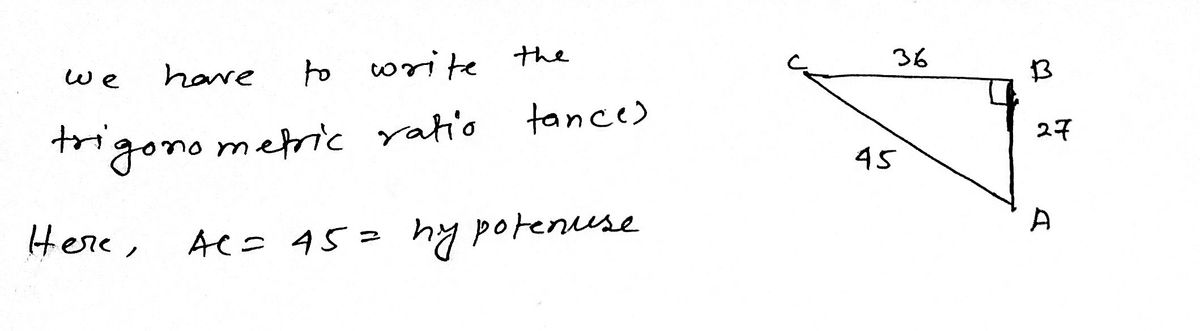 we have to write the
trigonometric ratio tan(c)
Here, AC = 45 = hypotenuse
C 36 B
27
45
A